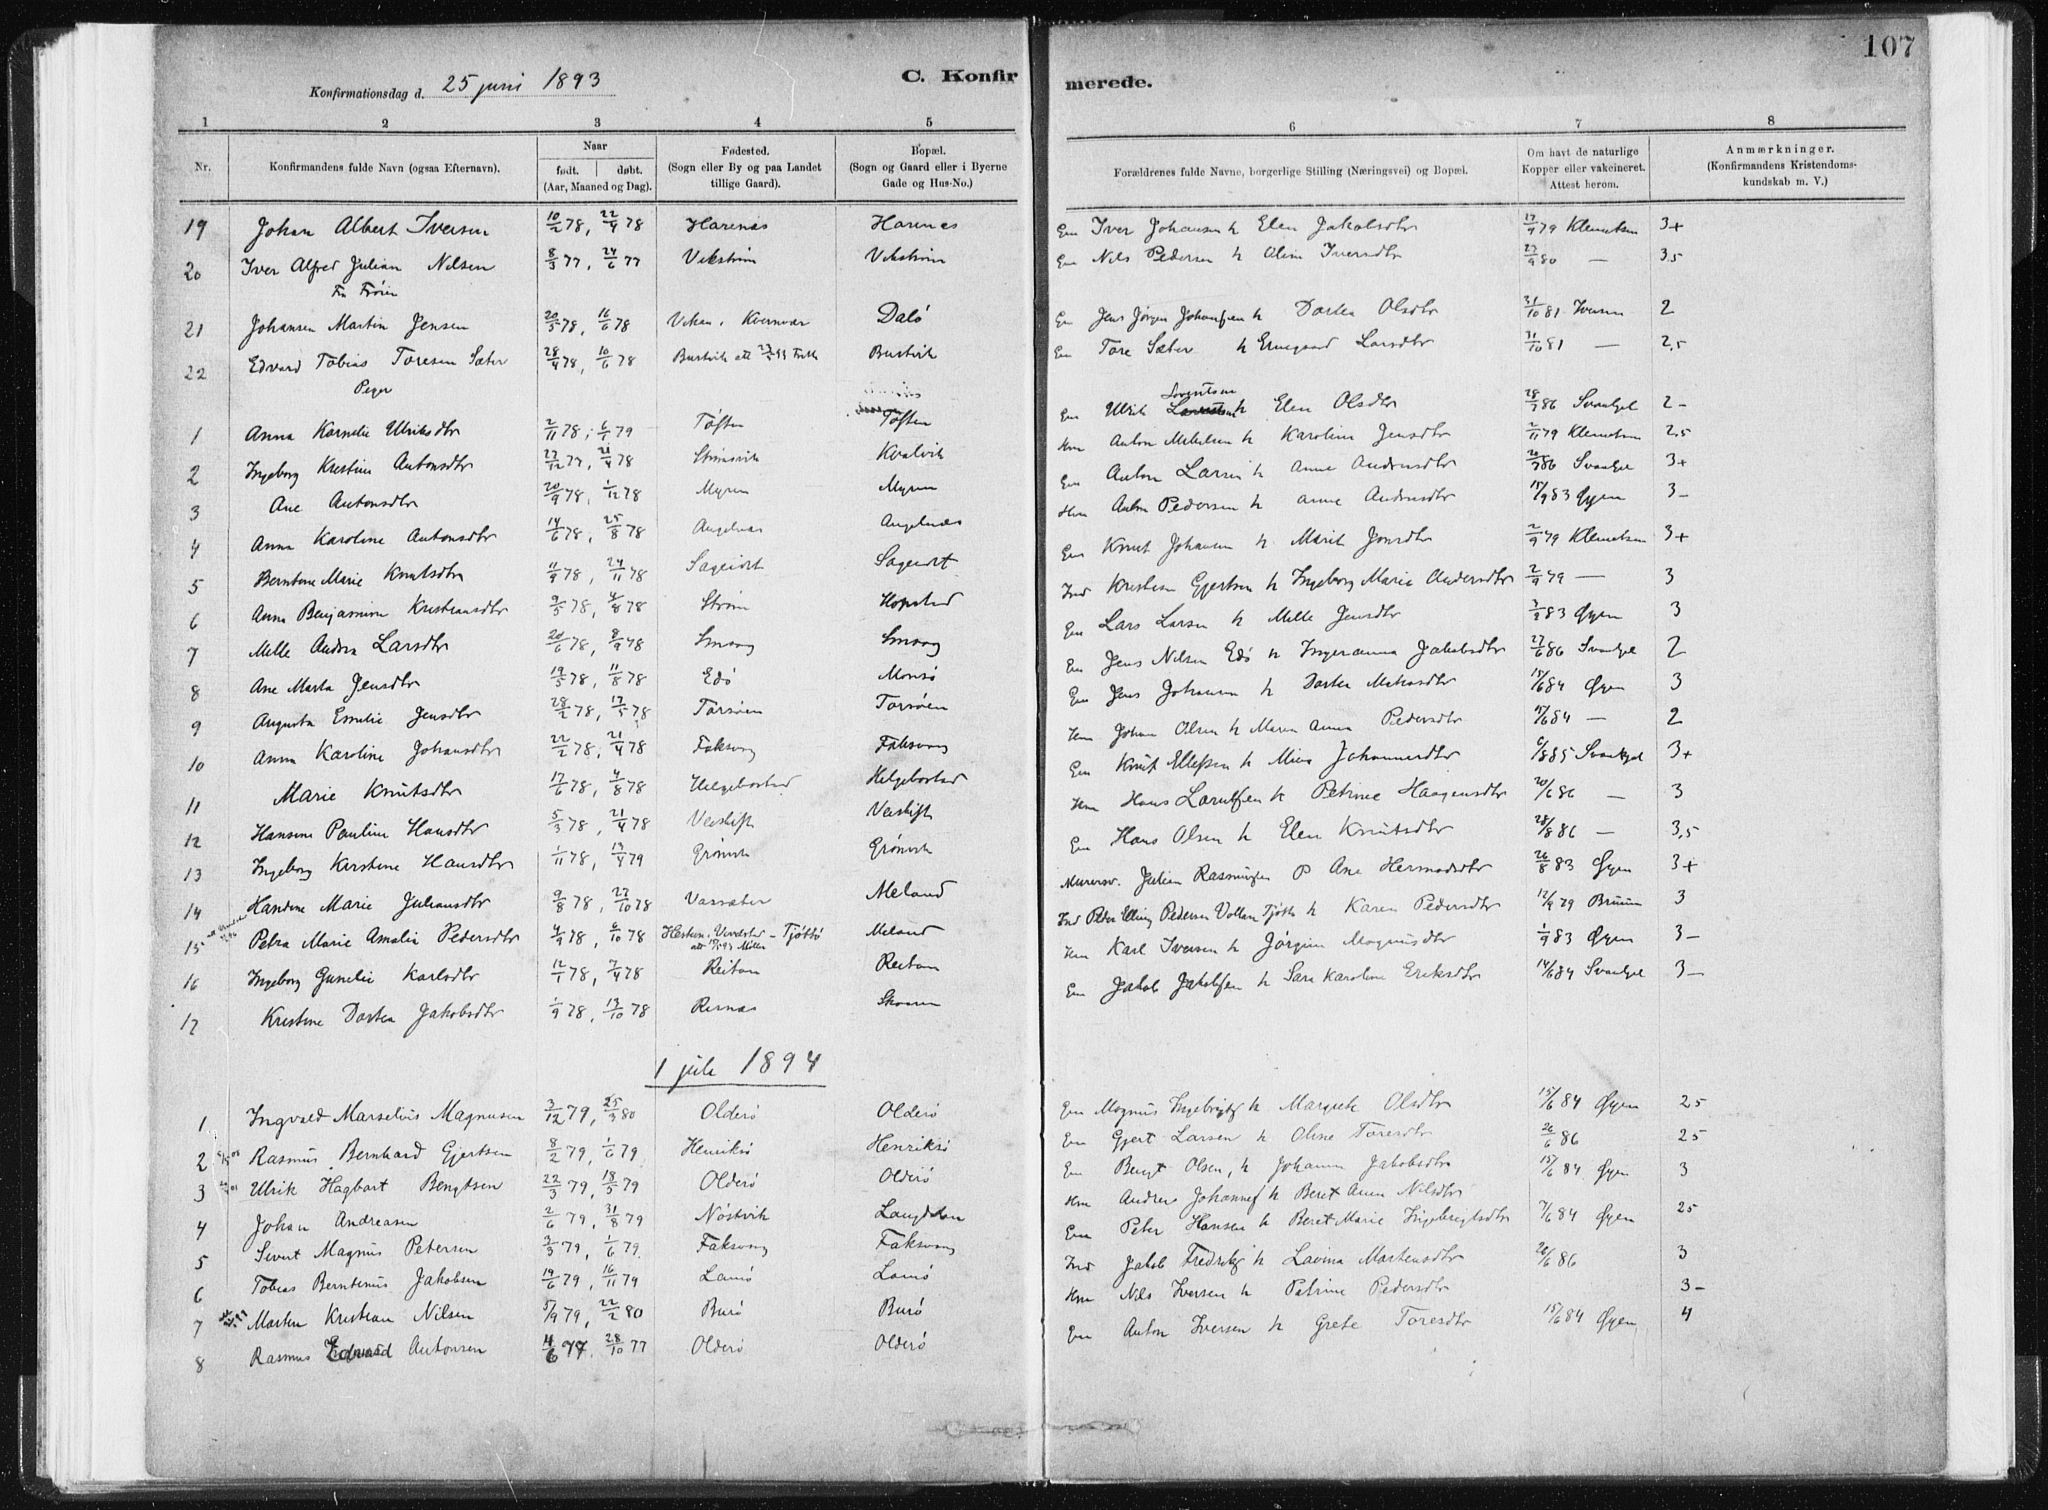 107
Konfirmationsdag d. 25 juni 1893
C. Konfirmerede.
1 2 3 4 5 6 7 8
Nr. Konfirmandens fulde Navn (ogsaa Efternavn). Naar født. døbt. (Aar, Maaned og Dag). Fødested. (Sogn eller By og paa Landet tillige Gaard). Bopæl. (Sogn og Gaard eller i Byerne Gade og Hus-No.) Forældrenes fulde Navne, borgerlige Stilling (Næringsvei) og Bopæl. Om havt de naturlige Kopper eller vakcineret. Attest herom. Anmærkninger. (Konfirmandens Kristendomskundskab m. V.)
19 Johan Albert Iversen 10/2 78, 22/4 78 Harenæs Harenæs Em Iver Johansen h Elen Jakobsdtr 17/9 79 Klemetsen 3+
20 Iver Alfred Julian Nilsen 8/3 77, 24/6 77 Vikström Vikström Em Nils Pedersen h Oline Iversdtr 27/9 80 — 3,5
Fra Frøien
21 Johansen Martin Jensen 20/5 78, 16/6 78 Vikan, Kvernvær Dalø Em Jens Jørgen Johansen h Dortea Olsdtr 31/10 81 Iversen 2
22 Edvard Tobias Toresen Sæter 28/4 78, 10/6 78 Burtvik Burtvik Em Tore Sæter h Larsdtr 31/10 81 — 2,5
Piger
1 Anna Kornelie Ulriksdtr 2/11 78, 6/1 79 Tøften Tøften Em Ulrik Lorentsen h Elen Olsdtr 28/7 86 2-
2 Ingeborg Kristine Antonsdtr 27/12 77, 21/4 78 Strömsvik Kvalvik Hm Anton h Karoline Jensdtr 2/11 79 Klemetsen 2,5
3 Ane Antonsdtr 20/9 78, 1/12 78 Myren Myren Em Anton Larsen h Anne Andersdtr 20/7 86 3+
4 Anna Karoline Antonsdtr 14/6 78, 25/8 78 Angelnæs Angelnæs Hm Anton Pedersen h Anne Andersdtr 15/9 83 Øyen 3-
5 Berntine Marie Knutsdtr 11/9 78, 24/11 78 Em Knut Johansen h Marit Jonsdtr 2/9 79 Klemetsen 3+
6 Anna Benjamine Kristiansdtr 9/5 78, 4/8 78 Strøm Hopstad Ind Kristen Gjertsen h Ingeborg Marie Andersdtr 2/9 79 — 3
7 Mille Andrea Larsdtr 20/6 78, 8/9 78 Smaag Smaag Em Lars Larsen h Mille Jensdtr 3/9 83 Øyen 3
8 Ane Marta Jensdtr 19/5 78, 11/8 78 Edø Morsø Em Jens Nilsen Edø h Ingeranna Jakobsdtr 27/6 86 2
9 Augusta Emelie Jensdtr 28/2 78, 17/5 78 Torsøen Torsøen Em Jens Johansen h Dortea Matiasdtr 15/6 84 Øyen 3
10 Anna Karoline Johansdtr 22/2 78, 21/4 78 Faksvaag Faksvaag Hm Johan Olsen h Maren Anna Pedersdtr 15/6 84 — 2
11 Marie Knutsdtr 17/6 78, 4/8 78 Helgebostad Helgebostad Em Knut Ellefsen h Johannesdtr 6/8 85 3+
12 Hansine Pauline Hansdtr 5/3 78, 21/4 78 Hm Hans h Petrine Haagensdtr 20/6 86 — 3
13 Ingeborg Kirstine Hansdtr 1/11 78, 13/4 79 Grönvik Grönvik Em Hans Olsen h Elen Knutsdtr 28/8 86 — 3,5
14 Handine Marie Juliansdtr 9/8 78, 27/10 78 Vassæter Meland Murersv. Julian Rasmussen & Ane Hermodsdtr 26/8 83 Øyen 3+
15 Petra Marie Amalia Pedersdtr 4/9 78, 6/10 78 Tjøttø Meland Ind Peder Elling Pedersen Vollan Tjøttø h Karen Pedersdtr 12/9 79 Bruun 3
16 Ingeborg Gunelie Karlsdtr 12/1 78, 7/4 78 Reitan Reitan Hm Karl Iversen h Jørgine Magnusdtr 1/9 83 Øyen 3-
17 Kristine Dortea Jakobsdtr 1/9 78, 13/10 78 Risnæs Skaaren Em Jakob Jakobsen h Sara Karoline Eriksdtr 14/6 84 3-
1 juli 1894
1 Ingvald Marselius Magnusen 3/12 79, 25/3 80 Olderø Olderø Em Magnus Ingebrigts h Margrete Olsdtr 15/6 84 Øyen 25
2 Rasmus Bernhard Gjertsen 8/2 79, 1/6 79 Henriksø Henriksø Em Gjert Larsen h Oline Toresdtr 26/6 86 25
3 Ulrik Hagbart Bengtsen 22/3 79, 18/5 79 Olderø Olderø Em Bengt Olsen, h Johanna Jakobsdtr 15/6 84 Øyen 3
4 Johan Andreasen 2/6 79, 31/8 79 Nöstvik Hm Andreas Johannes h Beret Anna Nilsdtr
5 Sivert Magnus Petersen 3/3 79, 1/6 79 Faksvaag Faksvaag Em Peter Hansen h Beret Marie Ingebrigtsdtr 7/6 84 Øyen 25
6 Tobias Berntinus Jakobsen 19/6 79, 16/11 79 Lamø Lamø Ind Jakob Fredriks h Lavina Martensdtr 20/6 86 3
7 Marten Kristian Nilsen 5/9 79, 22/2 80 Burø Burø Hm Nils Iversen h Petrine Pedersdtr 3-
8 Rasmus Edvard Antonsen 4/6 77, 28/10 77 Olderø Olderø Em Anton Iversen h Grete Toresdtr 15/6 84 Øyen 4